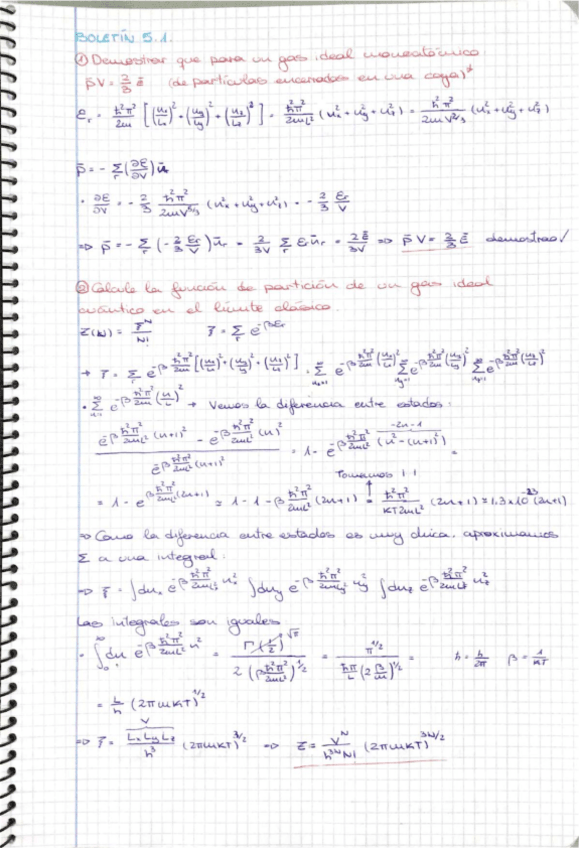 BOLETÍN 5.1.
① Demostrar que para un gas ideal monoatómico
p̄V = 2/3 Ē (de partículas encerradas en una caja)*
ε_r = ħ²π²/2m [(n_x/L_x)² + (n_y/L_y)² + (n_z/L_z)²] = ħ²π²/2mL² (n_x² + n_y² + n_z²) = ħ²π²/2mV^(2/3) (n_x² + n_y² + n_z²)
p̄ = - Σ_r (∂E/∂V) n̄_r
· ∂E/∂V = - 2/3 ħ²π²/2mV^(5/3) (n_x² + n_y² + n_z²) = - 2/3 ε_r/V
⇒ p̄ = - Σ_r (- 2/3 ε_r/V) n̄_r = 2/3V Σ_r ε_r n̄_r = 2Ē/3V ⇒ p̄V = 2/3 Ē demostrao✓
② Calcule la función de partición de un gas ideal
cuántico en el límite clásico.
Z(N) = ξ^N/N! ξ = Σ_r e^(-βε_r)
→ ξ = Σ_r e^(-β ħ²π²/2m [(n_x/L_x)² + (n_y/L_y)² + (n_z/L_z)²]) = Σ_(n_x=1)^∞ e^(-β ħ²π²/2m (n_x/L_x)²) Σ_(n_y=1)^∞ e^(-β ħ²π²/2m (n_y/L_y)²) Σ_(n_z=1)^∞ e^(-β ħ²π²/2m (n_z/L_z)²)
· Σ_(n=1)^∞ e^(-β ħ²π²/2m (n/L)²) → Vemos la diferencia entre estados:
(e^(-β ħ²π²/2mL² (n+1)²) - e^(-β ħ²π²/2mL² (n)²)) / e^(-β ħ²π²/2mL² (n+1)²) = 1 - e^(-β ħ²π²/2mL² (n² - (n+1)²)) =
-2n-1
Tomamos | |
= 1 - e^(β ħ²π²/2mL² (2n+1)) ≈ 1 - 1 - β ħ²π²/2mL² (2n+1) = ħ²π²/KT2mL² (2n+1) ≈ 1,3×10^(-23) (2n+1)
⇒ Como la diferencia entre estados es muy chica, aproximamos
Σ a una integral:
⇒ ξ = ∫dn_x e^(-β ħ²π²/2mL_x² n_x²) ∫dn_y e^(-β ħ²π²/2mL_y² n_y²) ∫dn_z e^(-β ħ²π²/2mL_z² n_z²)
Las integrales son iguales
· ∫_0^∞ dn e^(-β ħ²π²/2mL² n²) = Γ(1/2) √π / 2(β ħ²π²/2mL²)^(1/2) = π^(1/2) / (ħπ/L (2 β/m)^(1/2)) = ħ = h/2π β = 1/KT
= L/h (2πmKT)^(1/2)
V
⇒ ξ = L_x L_y L_z/h³ (2πmKT)^(3/2) ⇒ Z = V^N/h^(3N) N! (2πmKT)^(3N/2)